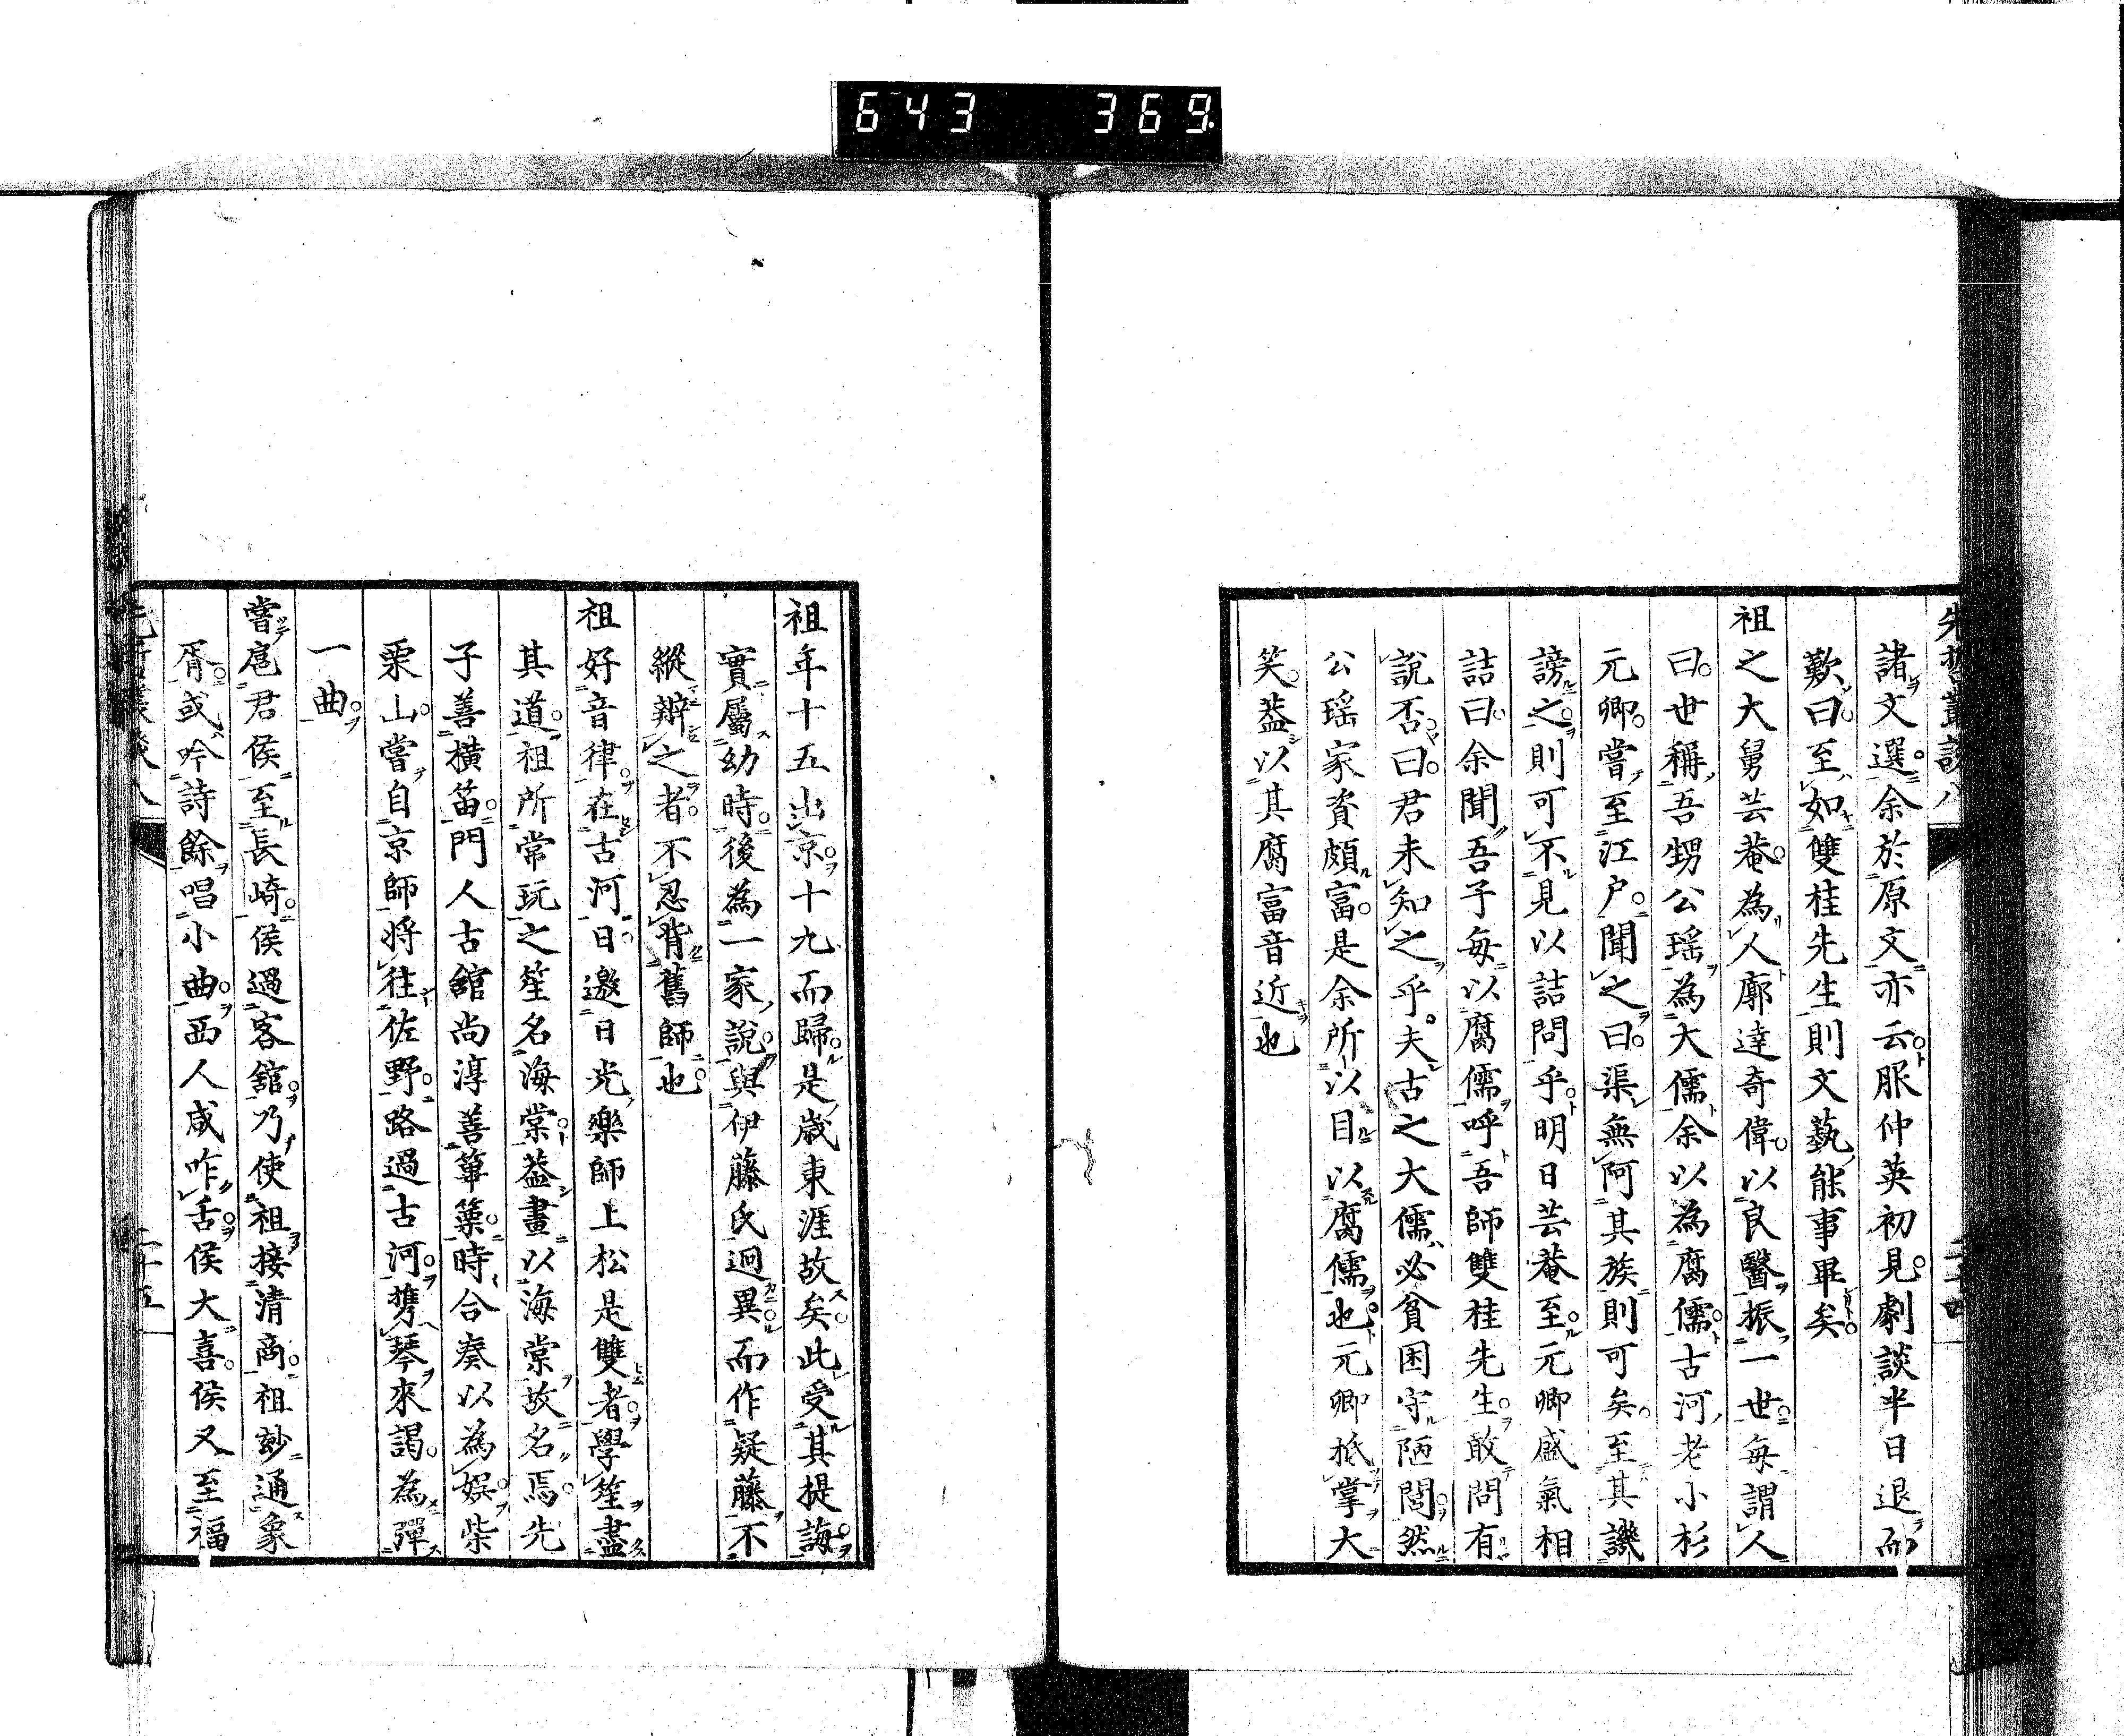 643 369
先哲叢談八
諸文選余於原文亦云服仲英初見劇談半日退而
歎曰至如雙桂先生則文藝能事畢矣
祖之大舅芸菴為人廓達奇偉以良醫振一世毎謂人
曰世稱吾甥公瑶為大儒余以為腐儒古河老小杉
元卿嘗至江戸聞之曰渠無阿其族則可矣至其譏
謗之則可不見以詰問乎明日芸菴至元卿盛氣相
詰曰余聞吾子毎以腐儒呼吾師雙桂先生敢問有
說否曰君未知之乎夫古之大儒必貧困守陋闇然
公瑶家資頗富是余所以目以腐儒也元卿抵掌大
笑蓋以其腐富音近也
二十四
祖年十五出京十九而歸是歳東涯故矣此受其提誨
實屬幼時後為一家說與伊藤氏迥異而作疑藤不
縱辯之者不忍背舊師也
祖好音律在古河日邀日光樂師上松是雙者學笙盡
其道祖所常玩之笙名海棠蓋畫以海棠故名焉先
子善横笛門人古舘尚淳善篳篥時合奏以為娯柴
栗山嘗自京師将往佐野路過古河攜琴來謁為彈
一曲
嘗扈君侯至長崎侯過客舘乃使祖接清商祖玅通象
胥或吟詩餘唱小曲西人咸咋舌侯大喜侯又至福
先哲叢談八
二十五